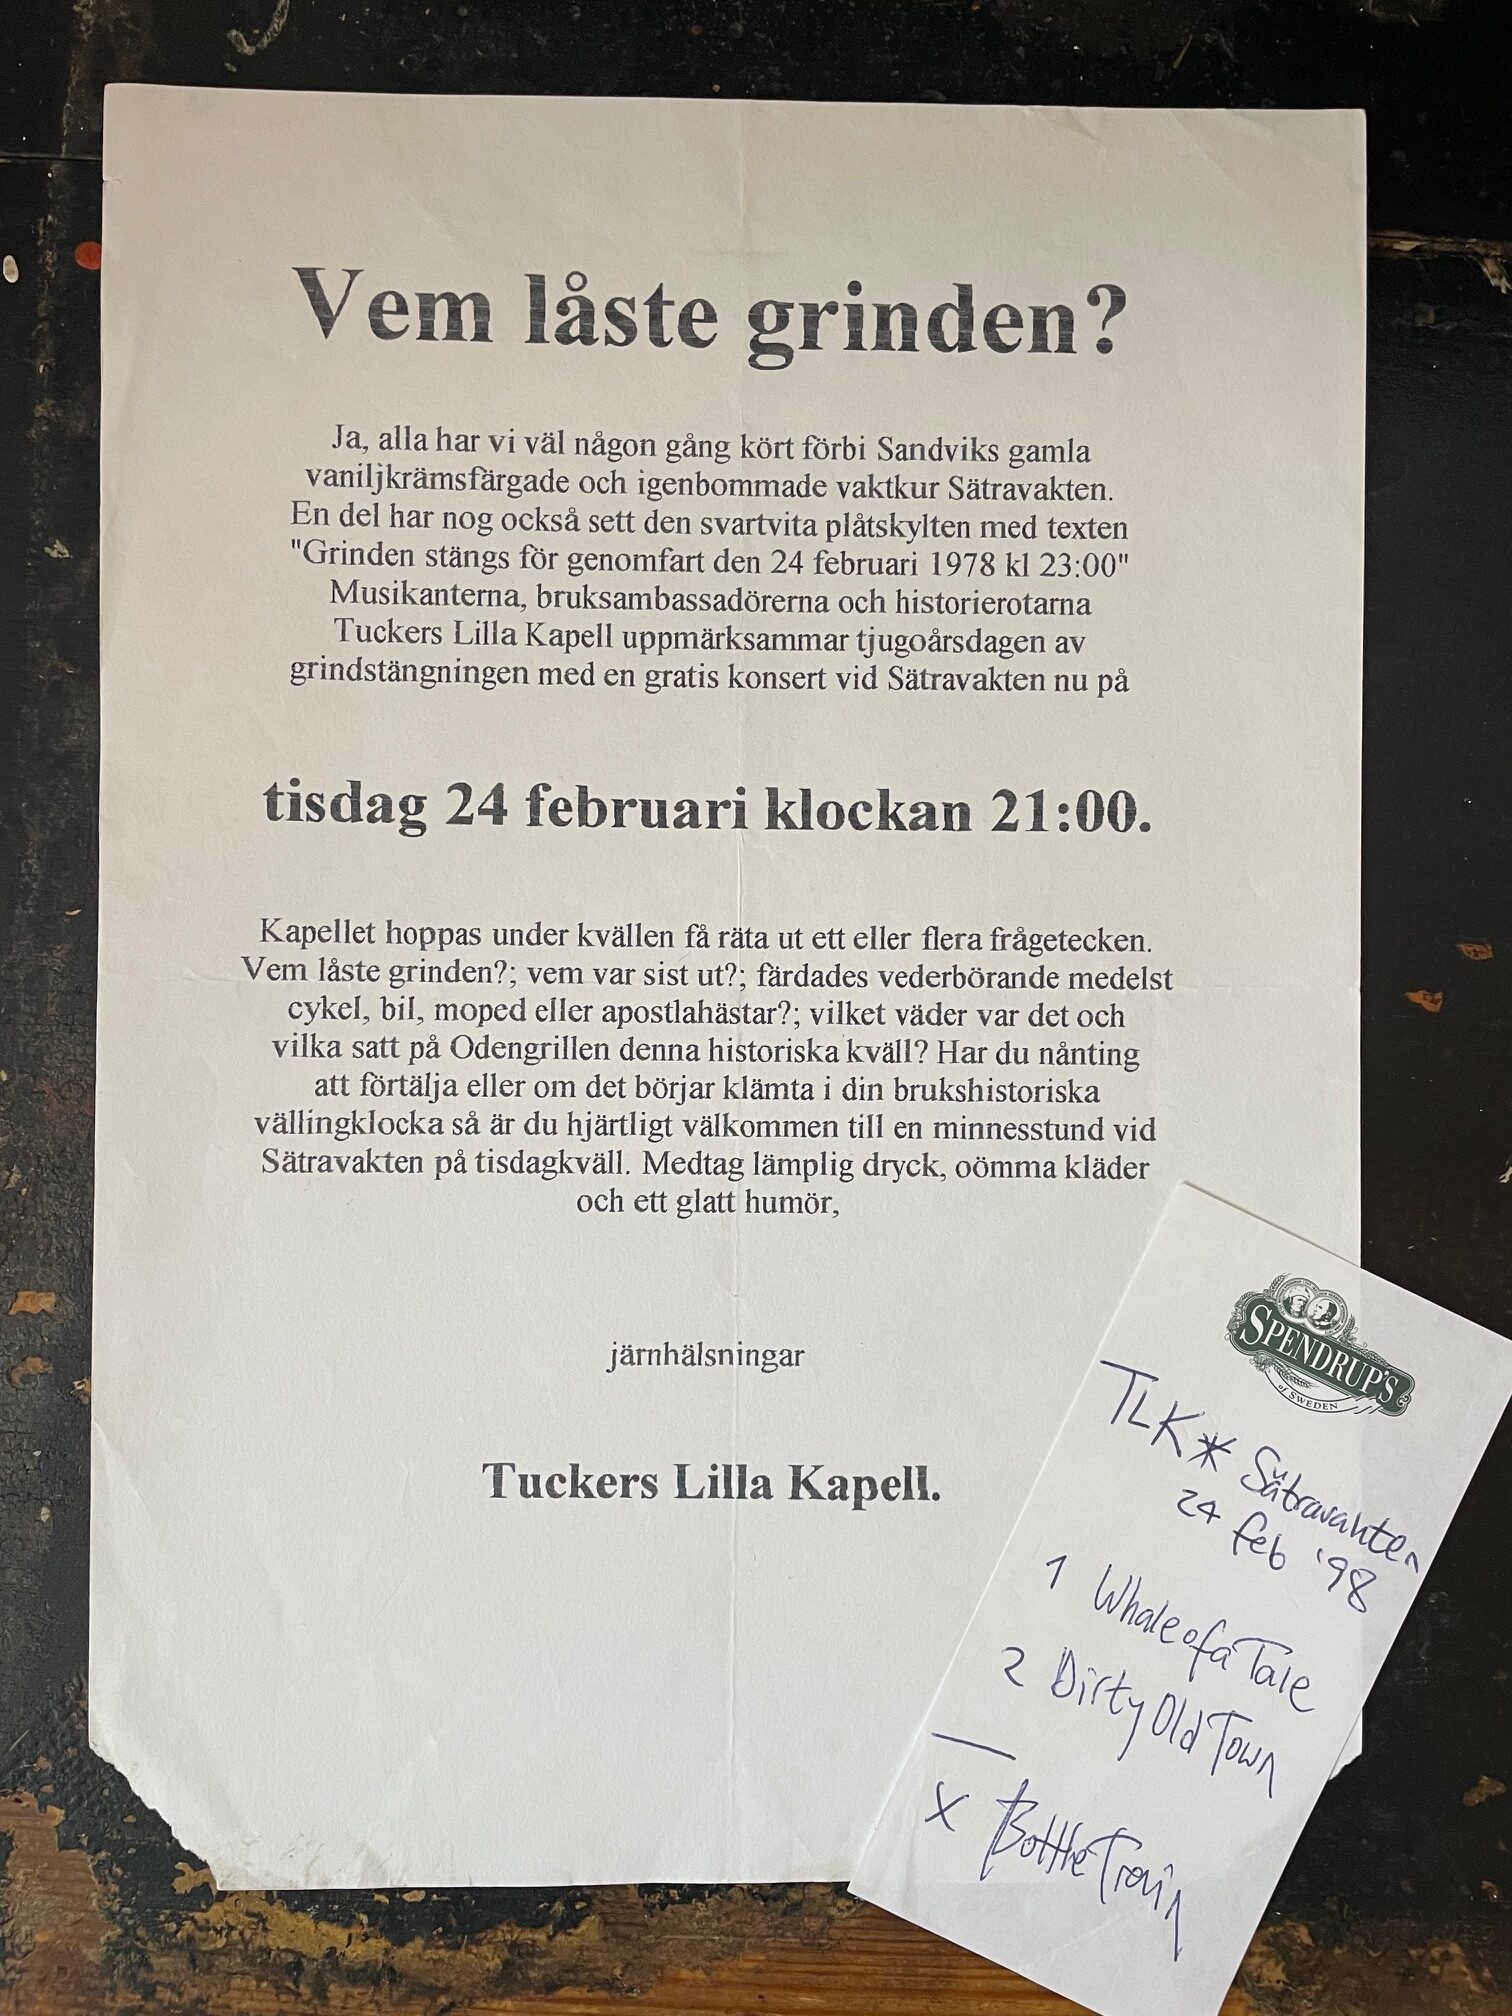 Vem låste grinden?
Ja, alla har vi väl någon gång kört förbi Sandviks gamla
vaniljkrämsfärgade och igenbommade vaktkur Sätravakten.
En del har nog också sett den svartvita plåtskylten med texten
"Grinden stängs för genomfart den 24 februari 1978 kl 23:00"
Musikanterna, bruksambassadörerna och historierotarna
Tuckers Lilla Kapell uppmärksammar tjugoårsdagen av
grindstängningen med en gratis konsert vid Sätravakten nu på
tisdag 24 februari klockan 21:00.
Kapellet hoppas under kvällen få räta ut ett eller flera frågetecken.
Vem låste grinden?; vem var sist ut?; färdades vederbörande medelst
cykel, bil, moped eller apostlahästar?; vilket väder var det och
vilka satt på Odengrillen denna historiska kväll? Har du nånting
att förtälja eller om det börjar klämta i din brukshistoriska
vällingklocka så är du hjärtligt välkommen till en minnesstund vid
Sätravakten på tisdagkväll. Medtag lämplig dryck, oömma kläder
och ett glatt humör,
järnhälsningar
Tuckers Lilla Kapell.
SPENDRUP'S
of SWEDEN
TLK* Sätravakten
24 feb '98
1 Whale of a Tale
2 Dirty Old Town
X Bottle Train